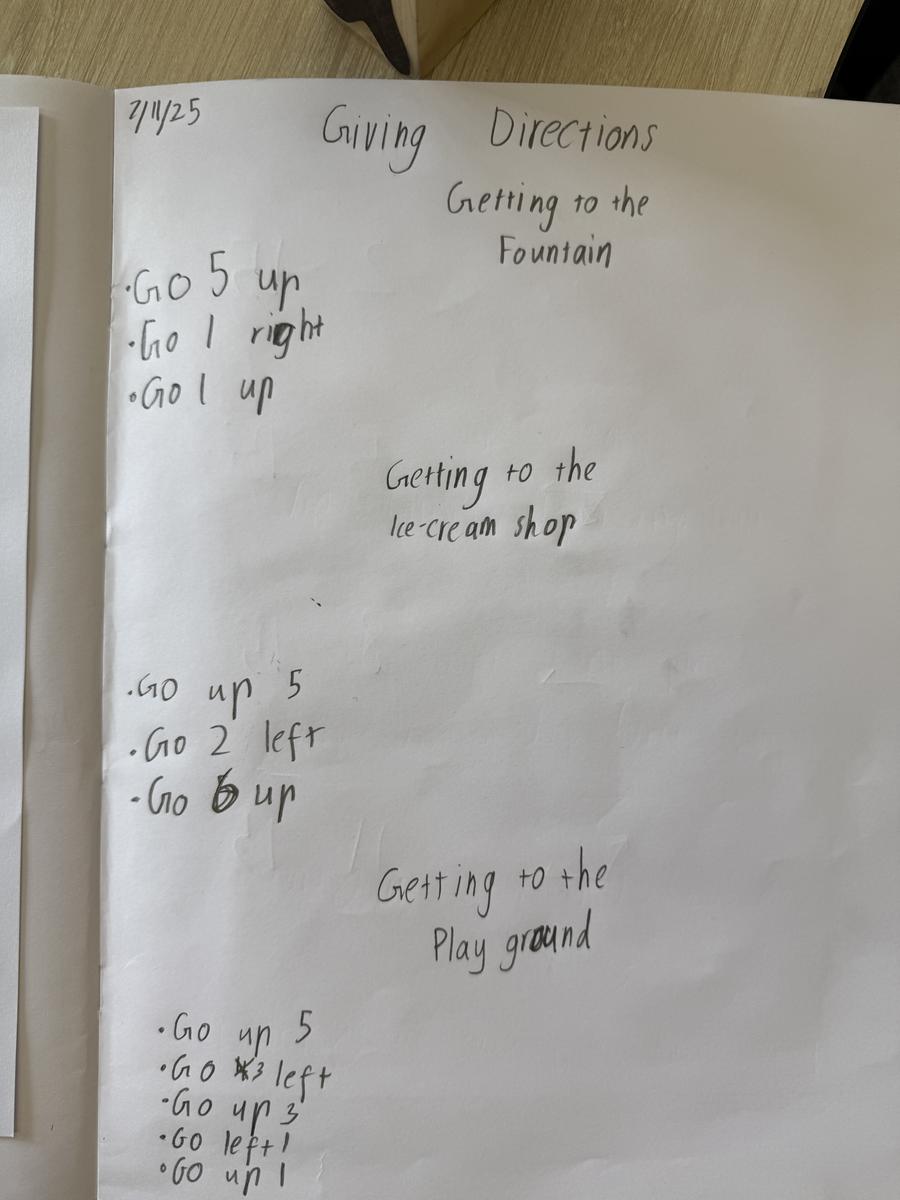 7/11/25
Giving Directions
Getting to the
Fountain
·Go 5 up
·Go 1 right
·Go 1 up
Getting to the
Ice-cream shop
·Go up 5
·Go 2 left
·Go 6 up
Getting to the
Play ground
·Go up 5
·Go 3 left
·Go up 3
·Go left 1
·Go up 1